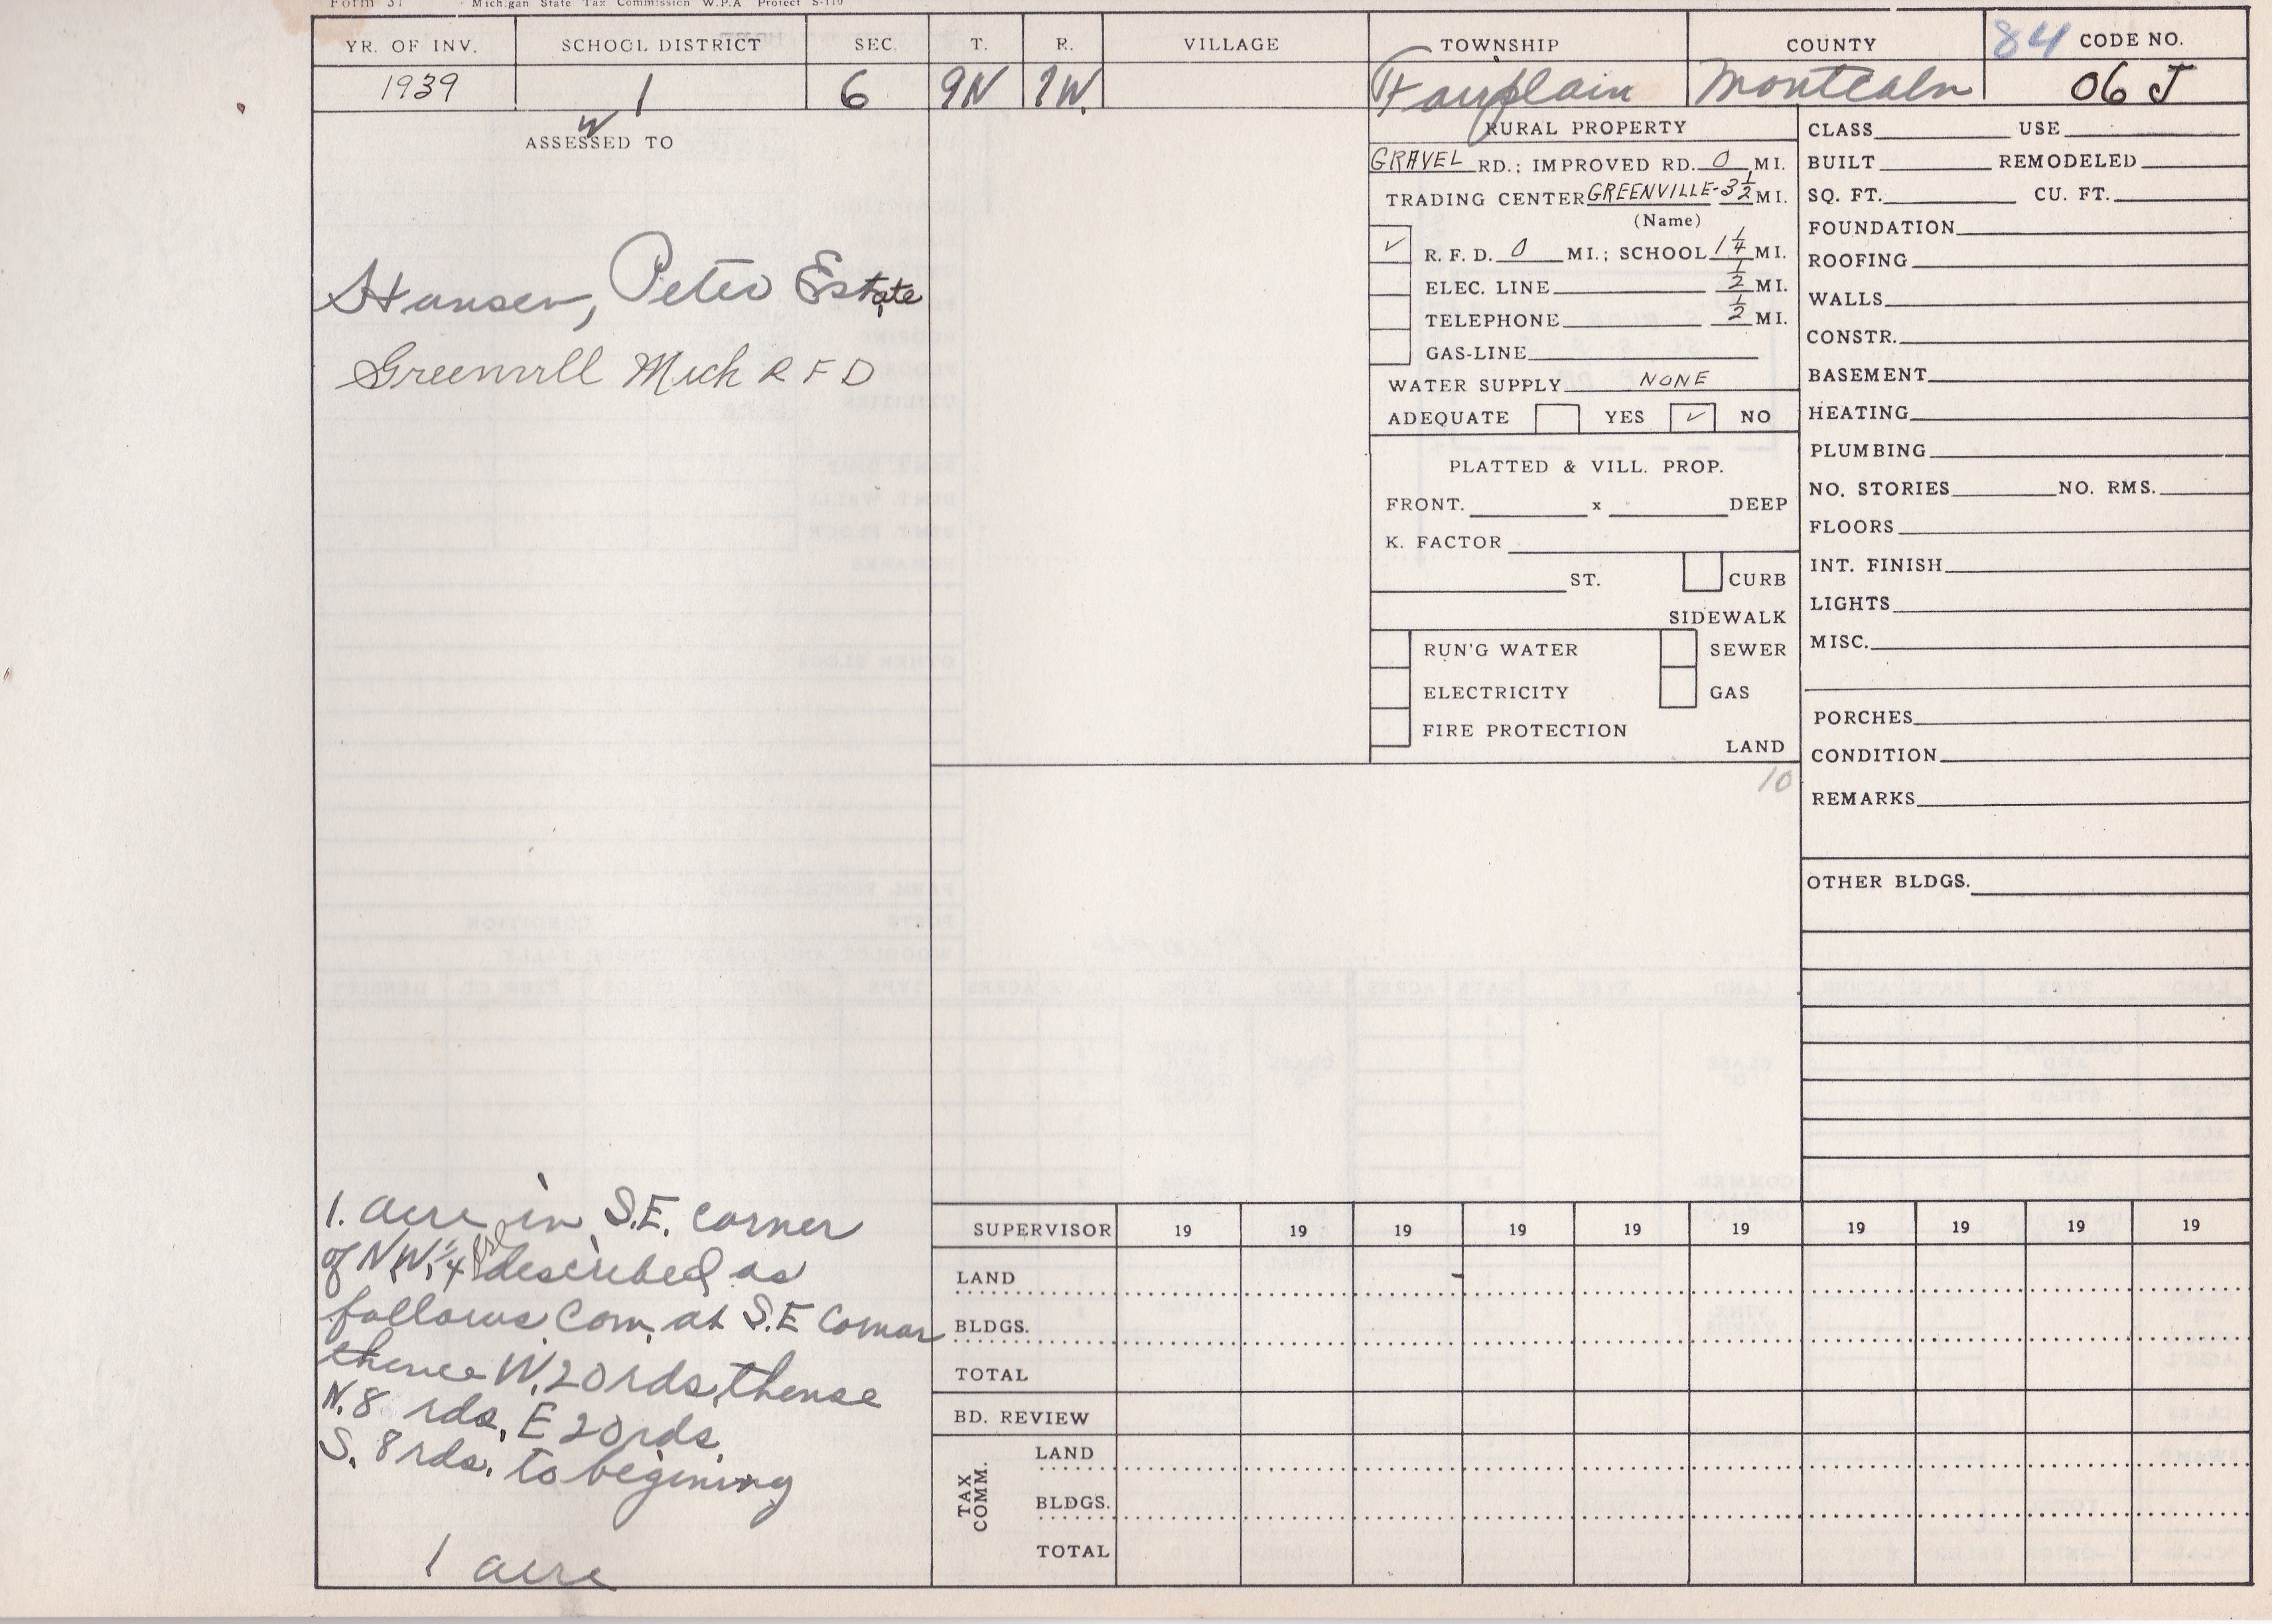 Form 37 Michigan State Tax Commission W.P.A Project S-110
YR. OF INV. SCHOOL DISTRICT SEC. T. R. VILLAGE TOWNSHIP COUNTY 84 CODE NO.
1939 1 6 9N 7W. Fairplain Montcalm 06 J
ASSESSED TO
Hansen, Peter Estate
Greenvill Mich R F D
1. acre in S.E. corner
of N.W. 1/4 frl described as
follows Com. at S.E Cornar
thence W. 20 rds, thense
N. 8 rds, E 20 rds,
S. 8 rds. to begining
1 acre
RURAL PROPERTY
GRAVEL RD.; IMPROVED RD. 0 MI.
TRADING CENTER GREENVILLE-3 1/2 MI.
(Name)
✓ R. F. D. 0 MI.; SCHOOL 1 1/4 MI.
ELEC. LINE 1/2 MI.
TELEPHONE 1/2 MI.
GAS-LINE
WATER SUPPLY NONE
ADEQUATE YES ✓ NO
PLATTED & VILL. PROP.
FRONT. x DEEP
K. FACTOR
ST. CURB
SIDEWALK
RUN'G WATER SEWER
ELECTRICITY GAS
FIRE PROTECTION
LAND
10
CLASS USE
BUILT REMODELED
SQ. FT. CU. FT.
FOUNDATION
ROOFING
WALLS
CONSTR.
BASEMENT
HEATING
PLUMBING
NO. STORIES NO. RMS.
FLOORS
INT. FINISH
LIGHTS
MISC.
PORCHES
CONDITION
REMARKS
OTHER BLDGS.
SUPERVISOR 19 19 19 19 19 19 19 19 19 19
LAND
BLDGS.
TOTAL
BD. REVIEW
TAX COMM.
LAND
BLDGS.
TOTAL